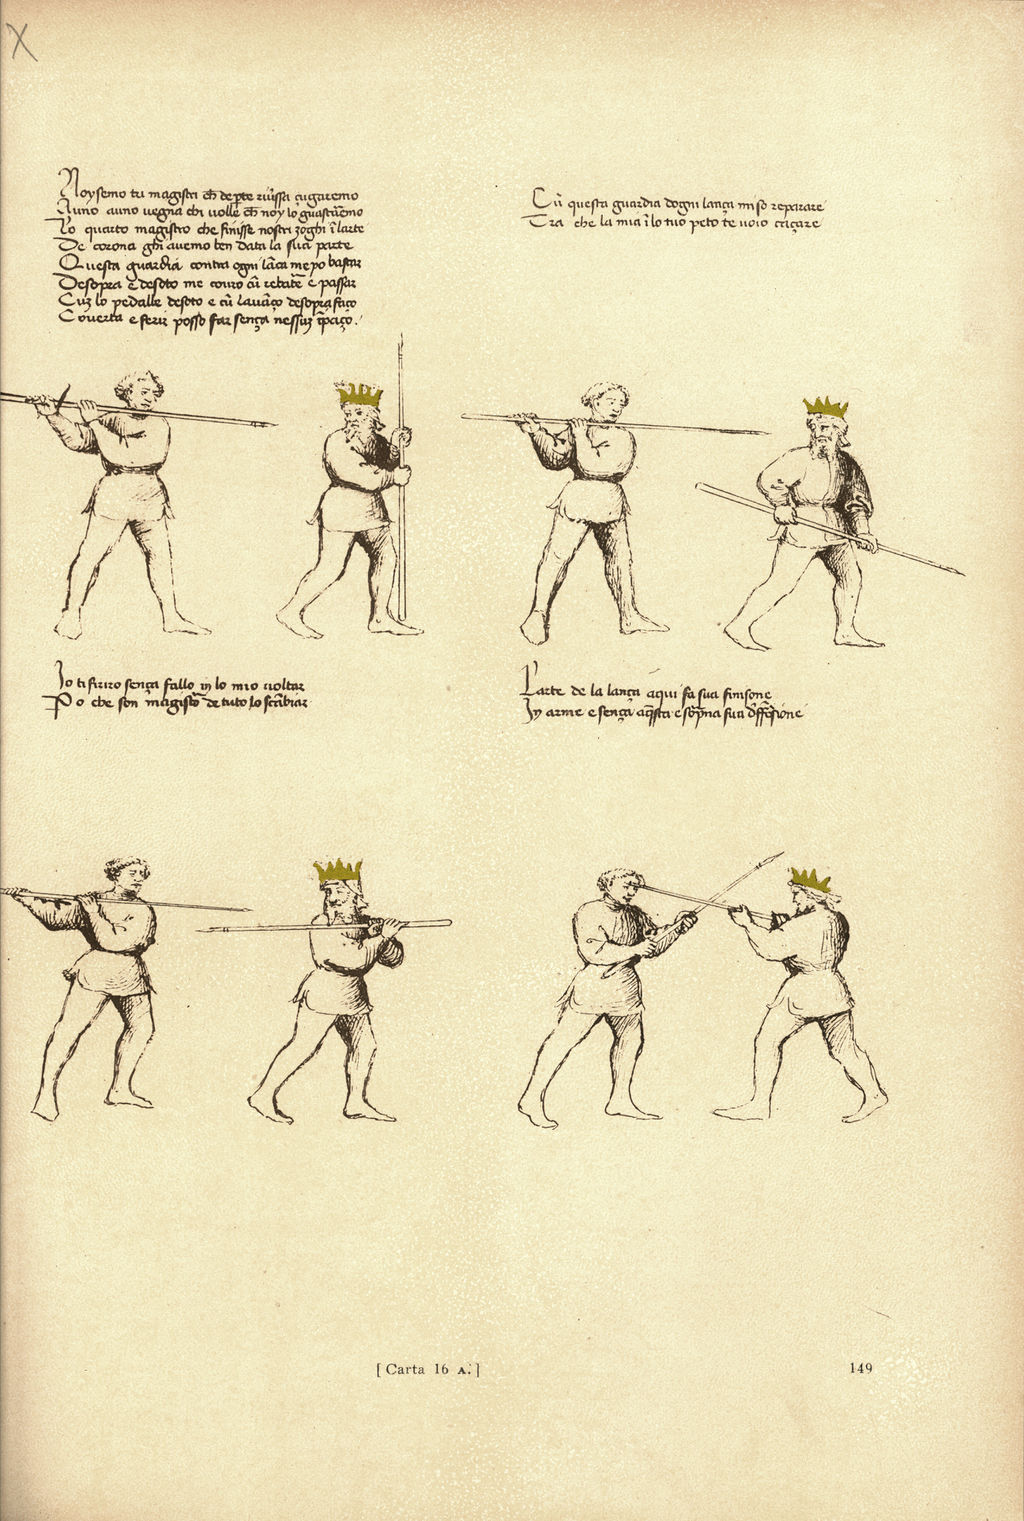 Noy semo tri magistri ch de pte riversa çugaremo
A uno a uno vegna chi volle ch noy lo guastaremo
Lo quarto magistro che finisse nostri zoghi i larte
De corona ghi avemo ben data la sua parte
Questa guardia contra ogni lāça me po bastar
Desopra e desoto me covro cū rebatere e passar
Cuz lo pedalle desoto e cū lavāço desopra faço
Coverta e feriz posso far sença nessuz īpaço.
Cū questa guardia dogni lança mi so reparare
Tra che la mia ī lo tuo peto te voio caçare
Io ti firiro sença fallo in lo mio voltar
Po che son magistro de tuto lo scrībiar
L'arte de la lança aqui fa sua finisone
In arme e sença aq̄sta e soprana sua diffensione
[Carta 16 A.]
149